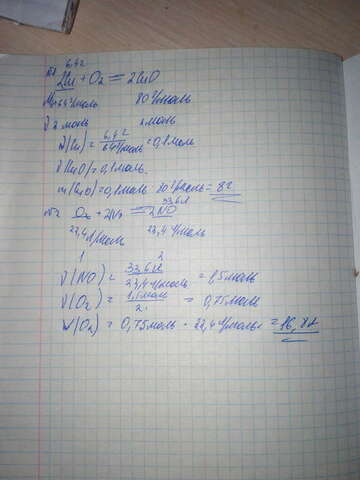 №1 6,4г
2Cu + O₂ = 2CuO
M=64г/моль 80г/моль
ν 2 моль 2 моль
ν(Cu) = 6,4г / 64г/моль = 0,1 моль
ν(CuO) = 0,1 моль.
m(CuO) = 0,1 моль · 80г/моль = 8г
33,6л
№2 O₂ + 2N₂ = 2NO
22,4 л/моль 22,4 л/моль
1 2
ν(NO) = 33,6л / 22,4л/моль = 1,5 моль
ν(O₂) = 1,5 моль / 2 = 0,75 моль
V(O₂) = 0,75 моль · 22,4 л/моль = 16,8л